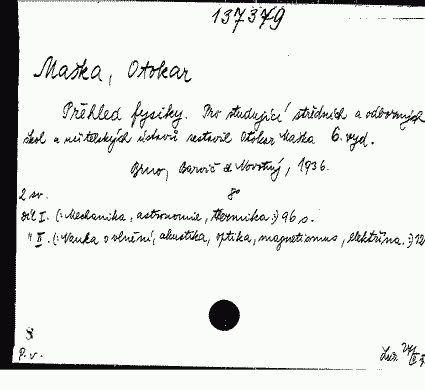 137379
Maška, Otokar
Přehled fysiky. Pro studující středních a odborných
škol a učitelských ústavů sestavil Otokar Maška 6. vyd.
Brno, Barvič & Novotný, 1936.
2 sv. 8°
díl I. (: Mechanika, astronomie, thermika :) 96 s.
" II. (: Nauka o vlnění, akustika, optika, magnetismus, elektřina. :) 12
P. v.